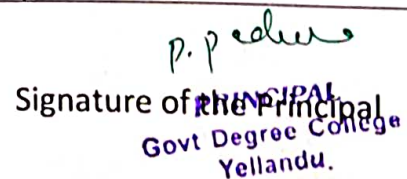 P. P
Signature of the Principal
PRINCIPAL
Govt Degree College
Yellandu.